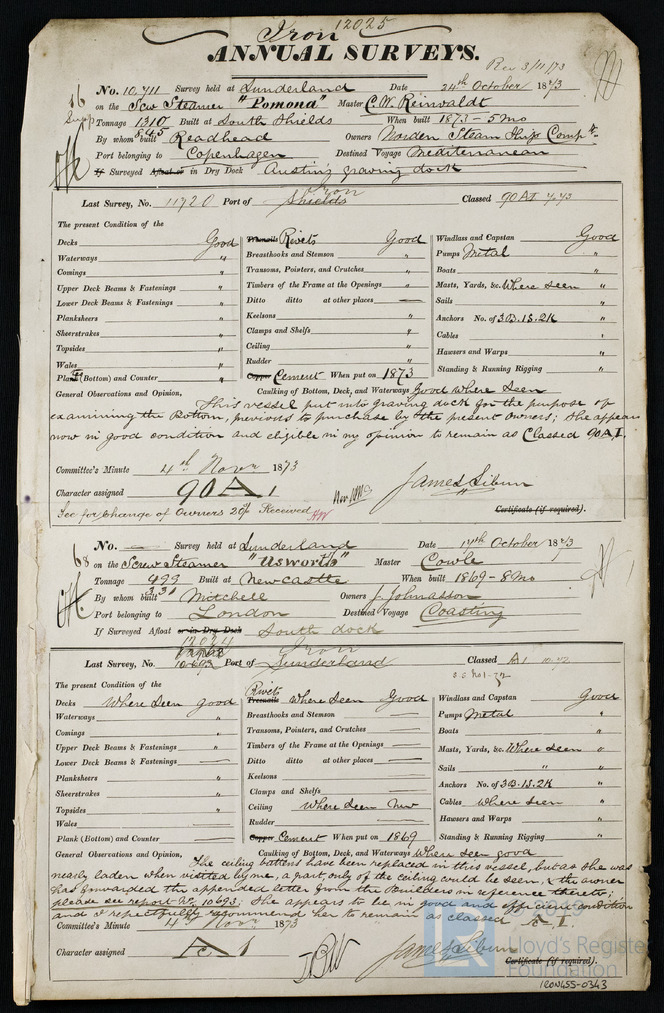 Iron 12025
ANNUAL SURVEYS.
Rec 3/11/73
16
No. 10,711 Survey held at Sunderland Date 24th October 1873
on the Scw Steamer "Pomona" Master C. W. Reinvaldt
Tonnage 1310 Built at South Shields When built 1873 - 5 Mo
845
By whom built Readhead Owners Norden Steam Ship Compy.
Port belonging to Copenhagen Destined Voyage Mediteranean
If Surveyed Afloat or in Dry Dock Austin's graving dock
Iron
Last Survey, No. 11720 Port of Shields Classed 90 A1 7.73
The present Condition of the
Decks Good Treenails Rivets Good Windlass and Capstan Good
Waterways " Breasthooks and Stemson " Pumps Metal "
Comings " Transons, Pointers, and Crutches " Boats "
Upper Deck Beams & Fastenings " Timbers of the Frame at the Openings " Masts, Yards, &c. Where seen "
Lower Deck Beams & Fastenings " Ditto ditto at other places — Sails "
Planksheers " Keelsons " Anchors No. of 3B.1S.2K "
Sheerstrakes " Clamps and Shelfs " Cables "
Topsides " Ceiling " Hawsers and Warps "
Wales " Rudder " Standing & Running Rigging "
Plank (Bottom) and Counter " Copper Cement When put on 1873
General Observations and Opinion, Caulking of Bottom, Deck, and Waterways Good where seen
This vessel put into graving dock for the purpose of
examining the Bottom, previous to purchase by the present owners; She appears
now in good condition and eligible in my opinion to remain as Classed 90 A.1.
Committee's Minute 4th Novr 1873
Character assigned 90 A 1 James Sibun
Fee for Change of Owners 20/ Received
Certificate (if required).
68
No. — Survey held at Sunderland Date 17th October 1873
on the Screw Steamer "Usworth" Master Cowle
Tonnage 499 Built at Newcastle When built 1869 - 8 Mo
331
By whom built Mitchell Owners J. Johnasson
Port belonging to London Destined Voyage Coasting
If Surveyed Afloat or in Dry Dock South dock
Iron
Last Survey, No. 10693 Port of Sunderland Classed A1 10.72
The present Condition of the
Rivets
Decks Where Seen good Treenails Where Seen Good Windlass and Capstan Good
Waterways Breasthooks and Stemson — Pumps Metal "
Comings " Transons, Pointers, and Crutches — Boats "
Upper Deck Beams & Fastenings " Timbers of the Frame at the Openings — Masts, Yards, &c. Where Seen "
Lower Deck Beams & Fastenings — Ditto ditto at other places — Sails " "
Planksheers " Keelsons — Anchors No. of 3B.1S.2K "
Sheerstrakes " Clamps and Shelfs — Cables where seen "
Topsides " Ceiling Where Seen New Hawsers and Warps "
Wales — Rudder — Standing & Running Rigging "
Plank (Bottom) and Counter — Copper Cement When put on 1869
General Observations and Opinion, Caulking of Bottom, Deck, and Waterways Where seen good
The ceiling battens have been replaced in this vessel, but as she was
nearly laden when visited by me, a part only of the ceiling could be seen, & the owner
has forwarded the appended letter from the Builders in reference thereto,
please see report No. 10693; She appears to be in good and efficient condition
and I respectfully recommend her to remain as classed A.1.
Committee's Minute 4th Novr 1873
Character assigned A 1 James Sibun
Certificate (if required).
LR
© 2019
Lloyd's Register
Foundation
IRON455-0343